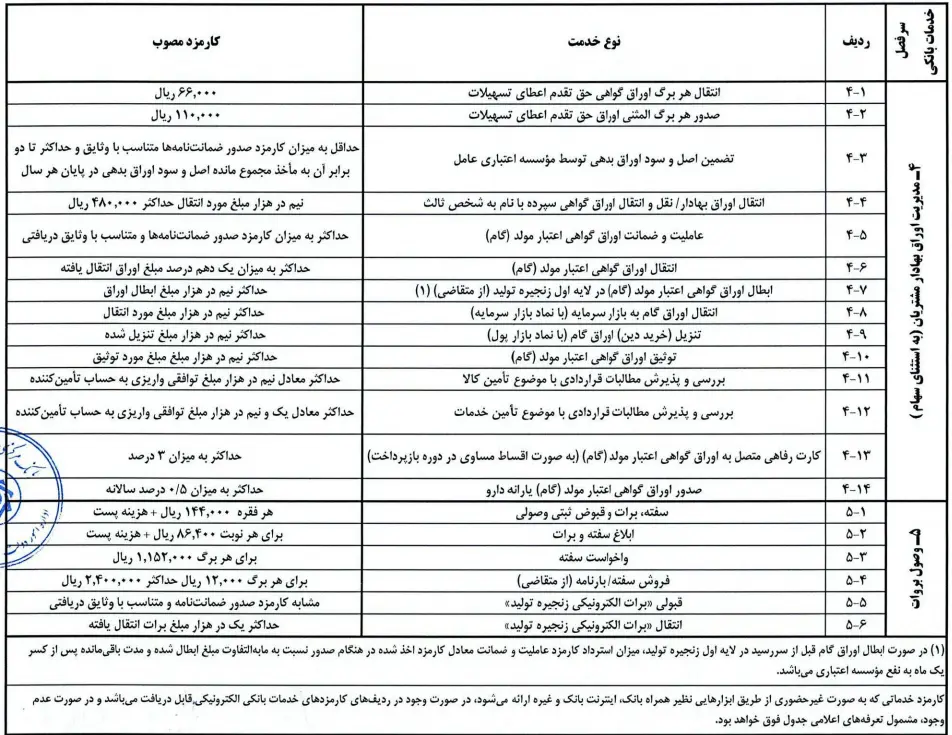 سرفصل خدمات بانکی
ردیف
نوع خدمت
کارمزد مصوب
۴ـ مدیریت اوراق بهادار مشتریان (به استثنای سهام)
۴-۱
انتقال هر برگ اوراق گواهی حق تقدم اعطای تسهیلات
۶۶,۰۰۰ ریال
۴-۲
صدور هر برگ المثنی اوراق حق تقدم اعطای تسهیلات
۱۱۰,۰۰۰ ریال
۴-۳
تضمین اصل و سود اوراق بدهی توسط مؤسسه اعتباری عامل
حداقل به میزان کارمزد صدور ضمانت‌نامه‌ها متناسب با وثایق و حداکثر تا دو
برابر آن به مأخذ مجموع مانده اصل و سود اوراق بدهی در پایان هر سال
۴-۴
انتقال اوراق بهادار/ نقل و انتقال اوراق گواهی سپرده با نام به شخص ثالث
نیم در هزار مبلغ مورد انتقال حداکثر ۴۸۰,۰۰۰ ریال
۴-۵
عاملیت و ضمانت اوراق گواهی اعتبار مولد (گام)
حداکثر به میزان کارمزد صدور ضمانت‌نامه‌ها و متناسب با وثایق دریافتی
۴-۶
انتقال اوراق گواهی اعتبار مولد (گام)
حداکثر به میزان یک دهم درصد مبلغ اوراق انتقال یافته
۴-۷
ابطال اوراق گواهی اعتبار مولد (گام) در لایه اول زنجیره تولید (از متقاضی) (۱)
حداکثر نیم در هزار مبلغ ابطال اوراق
۴-۸
انتقال اوراق گام به بازار سرمایه (با نماد بازار سرمایه)
حداکثر نیم در هزار مبلغ مورد انتقال
۴-۹
تنزیل (خرید دین) اوراق گام (با نماد بازار پول)
حداکثر نیم در هزار مبلغ تنزیل شده
۴-۱۰
توثیق اوراق گواهی اعتبار مولد (گام)
حداکثر نیم در هزار مبلغ مبلغ مورد توثیق
۴-۱۱
بررسی و پذیرش مطالبات قراردادی با موضوع تأمین کالا
حداکثر معادل نیم در هزار مبلغ توافقی واریزی به حساب تأمین‌کننده
۴-۱۲
بررسی و پذیرش مطالبات قراردادی با موضوع تأمین خدمات
حداکثر معادل یک و نیم در هزار مبلغ توافقی واریزی به حساب تأمین‌کننده
۴-۱۳
کارت رفاهی متصل به اوراق گواهی اعتبار مولد (گام) (به صورت اقساط مساوی در دوره بازپرداخت)
حداکثر به میزان ۳ درصد
۴-۱۴
صدور اوراق گواهی اعتبار مولد (گام) یارانه دارو
حداکثر به میزان ۰/۵ درصد سالانه
۵ـ وصول بروات
۵-۱
سفته، برات و قبوض ثبتی وصولی
هر فقره ۱۴۴,۰۰۰ ریال + هزینه پست
۵-۲
ابلاغ سفته و برات
برای هر نوبت ۸۶,۴۰۰ ریال + هزینه پست
۵-۳
واخواست سفته
برای هر برگ ۱,۱۵۲,۰۰۰ ریال
۵-۴
فروش سفته/بارنامه (از متقاضی)
برای هر برگ ۱۲,۰۰۰ ریال حداکثر ۲,۴۰۰,۰۰۰ ریال
۵-۵
قبولی «برات الکترونیکی زنجیره تولید»
مشابه کارمزد صدور ضمانت‌نامه و متناسب با وثایق دریافتی
۵-۶
انتقال «برات الکترونیکی زنجیره تولید»
حداکثر یک در هزار مبلغ برات انتقال یافته
(۱) در صورت ابطال اوراق گام قبل از سررسید در لایه اول زنجیره تولید، میزان استرداد کارمزد عاملیت و ضمانت معادل کارمزد اخذ شده در هنگام صدور نسبت به مابه‌التفاوت مبلغ ابطال شده و مدت باقی‌مانده پس از کسر
یک ماه به نفع مؤسسه اعتباری می‌باشد.
کارمزد خدماتی که به صورت غیرحضوری از طریق ابزارهایی نظیر همراه بانک، اینترنت بانک و غیره ارائه می‌شود، در صورت وجود در ردیف‌های کارمزدهای خدمات بانکی الکترونیکی، قابل دریافت می‌باشد و در صورت عدم
وجود، مشمول تعرفه‌های اعلامی جدول فوق خواهد بود.